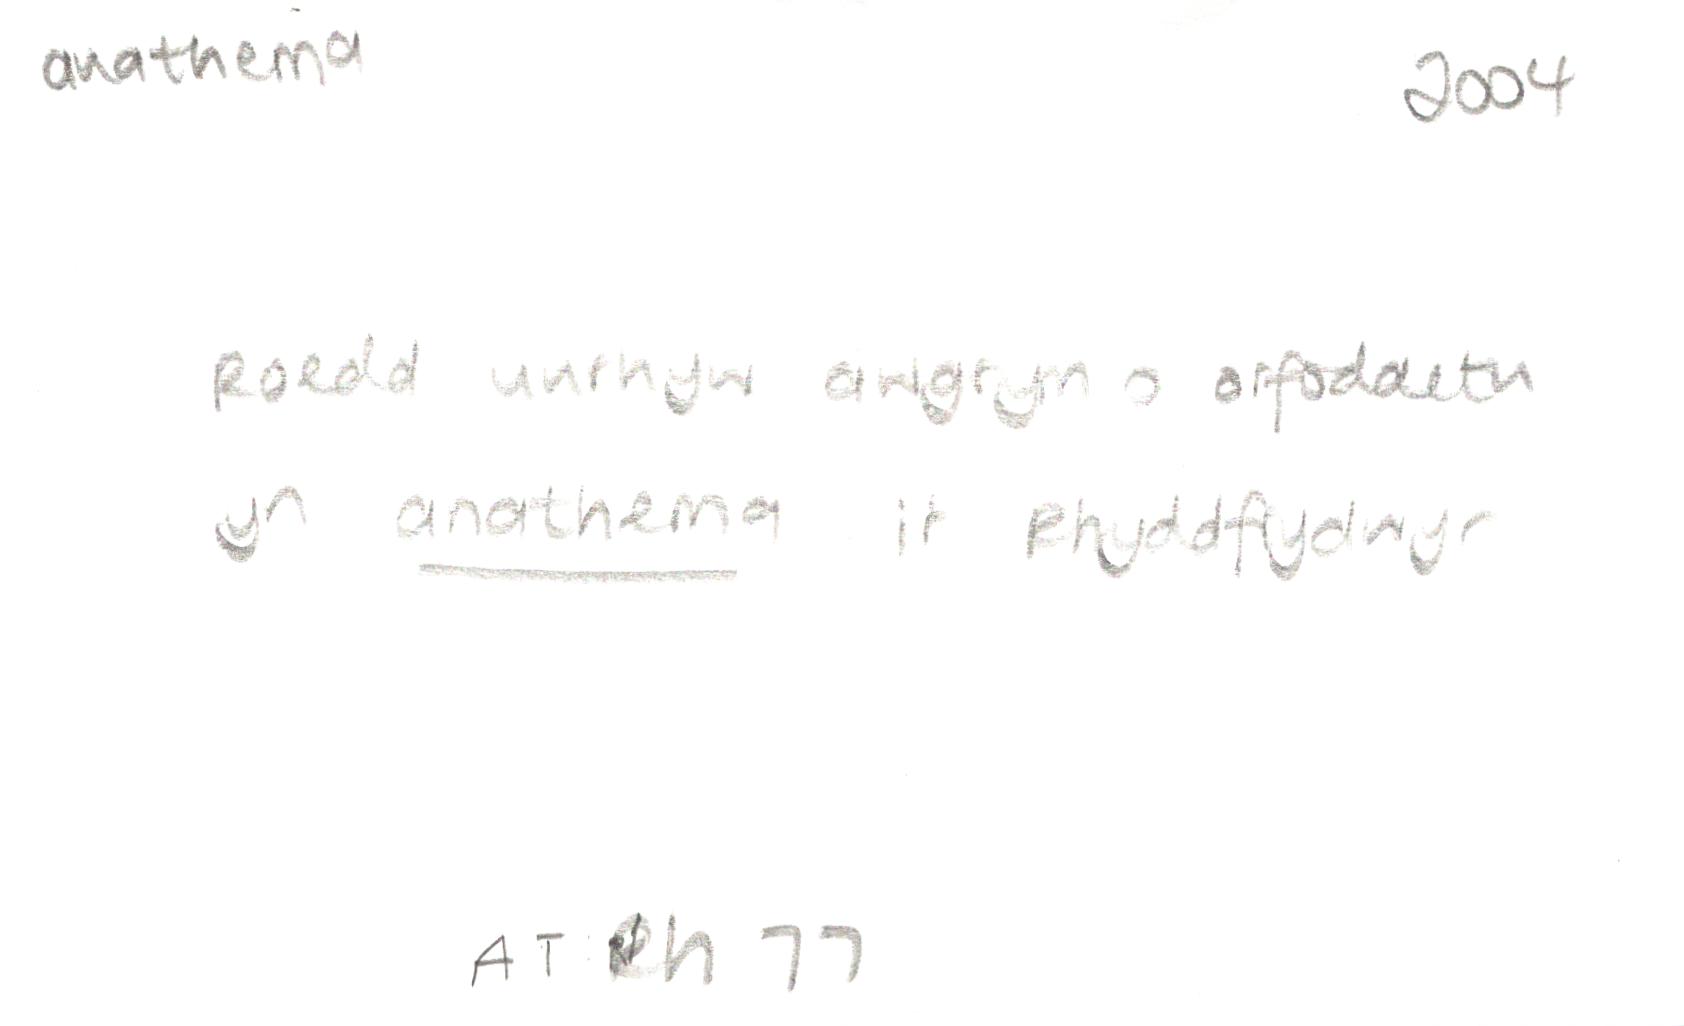 anathema 2004
Roedd unrhyw awgrym o orfodaeth
yn anathema i'r Rhyddfrydwyr
AT: Rh 77